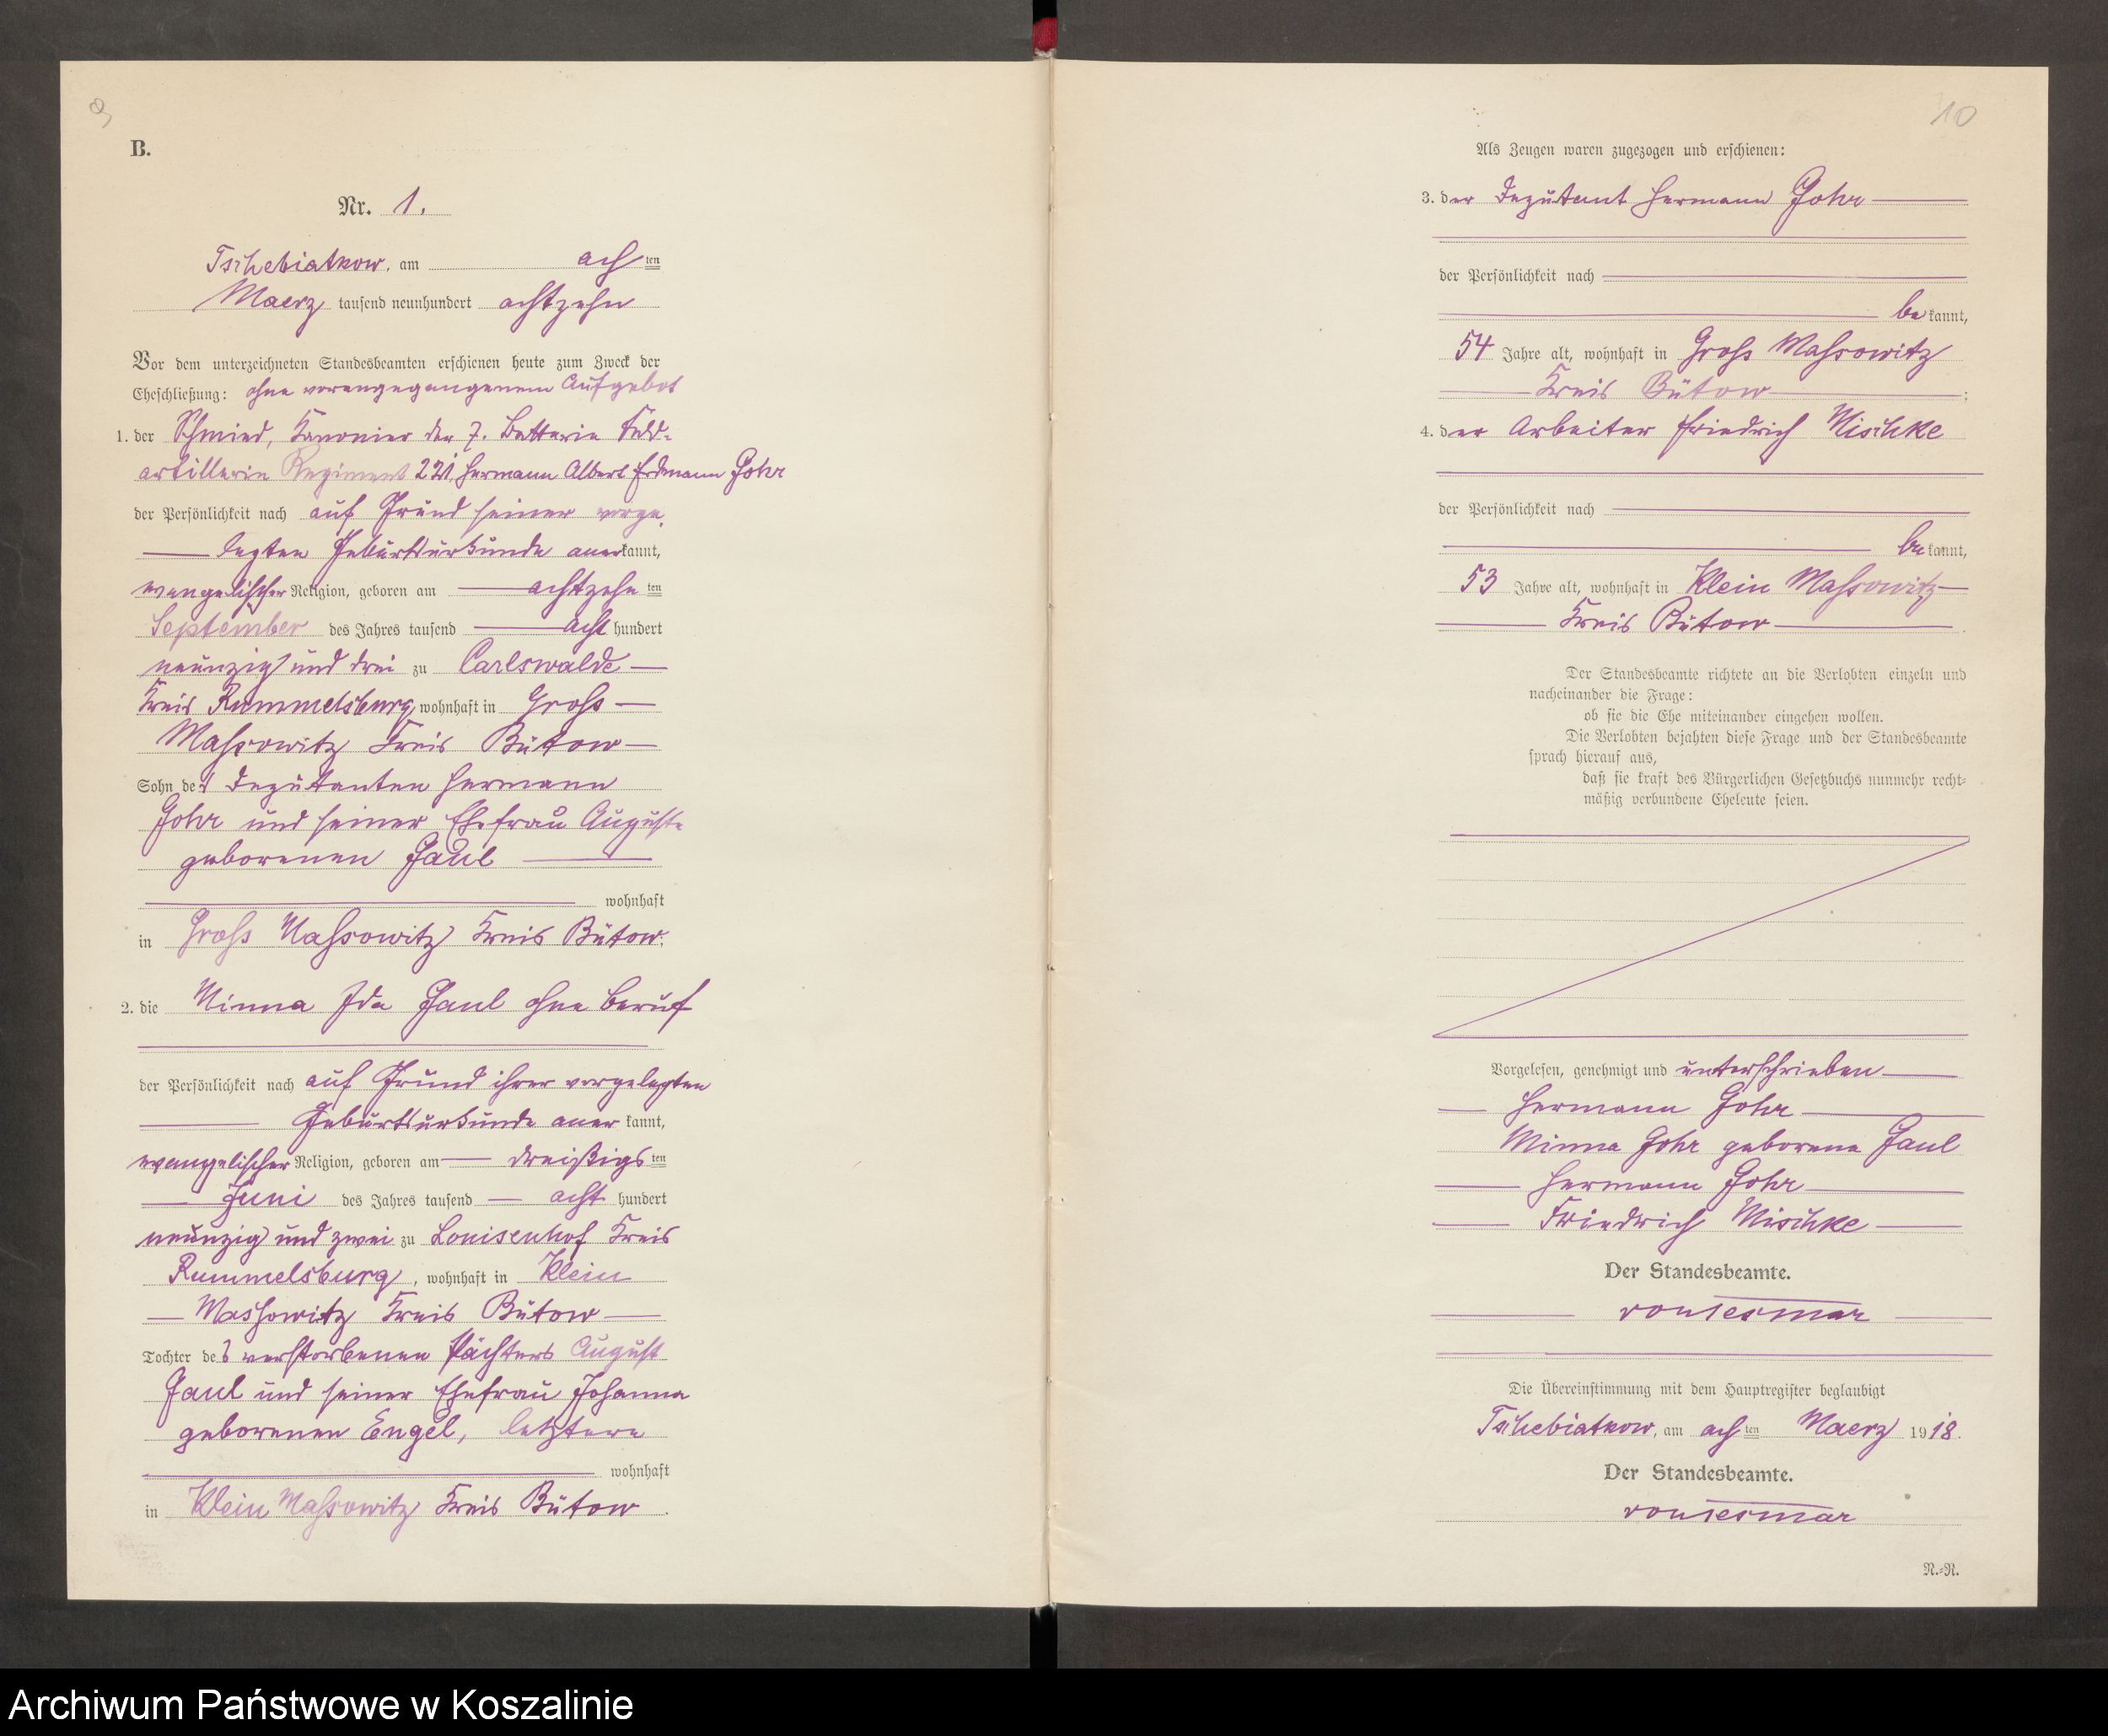 9
B.
Nr. 1.
Tschebiatkow, am ach ten
Maerz tausend neunhundert achtzehn
Vor dem unterzeichneten Standesbeamten erschienen heute zum Zweck der
Eheschließung: ohne vorangegangenem Aufgebot
1. der Schmied, Kanonier der 7. Batterie Feld-
artillerie Regiment 221, Hermann Albert Erdmann Gohr
der Persönlichkeit nach auf Grund seiner vorge
legten Geburtsurkunde anerkannt,
evangelischer Religion, geboren am achtzehn ten
September des Jahres tausend acht hundert
neunzig und drei zu Carlswalde
Kreis Rummelsburg, wohnhaft in Gross
Massowitz Kreis Bütow
Sohn des Deputanten Hermann
Gohr und seiner Ehefrau Auguste
geborenen Gaul
wohnhaft
in Gross Massowitz Kreis Bütow.
2. die Minna Ida Gaul ohne Beruf
der Persönlichkeit nach auf Grund ihrer vorgelegten
Geburtsurkunde aner kannt,
evangelischer Religion, geboren am dreißigs ten
Juni des Jahres tausend acht hundert
neunzig und zwei zu Louisenhof Kreis
Rummelsburg, wohnhaft in Klein
Massowitz Kreis Bütow
Tochter des verstorbenen Pächters August
Gaul und seiner Ehefrau Johanna
geborenen Engel, letztere
wohnhaft
in Klein Massowitz Kreis Bütow.
10
Als Zeugen waren zugezogen und erschienen:
3. der Deputant Hermann Gohr
der Persönlichkeit nach
be kannt,
54 Jahre alt, wohnhaft in Gross Massowitz
Kreis Bütow;
4. der Arbeiter Friedrich Mischke
der Persönlichkeit nach
be kannt,
53 Jahre alt, wohnhaft in Klein Massowitz
Kreis Bütow.
Der Standesbeamte richtete an die Verlobten einzeln und
nacheinander die Frage:
ob sie die Ehe miteinander eingehen wollen.
Die Verlobten bejahten diese Frage und der Standesbeamte
sprach hierauf aus,
daß sie kraft des Bürgerlichen Gesetzbuchs nunmehr recht-
mäßig verbundene Eheleute seien.
Vorgelesen, genehmigt und unterschrieben
Hermann Gohr
Minna Gohr geborene Gaul
Hermann Gohr
Friedrich Mischke
Der Standesbeamte.
Die Übereinstimmung mit dem Hauptregister beglaubigt
Tschebiatkow, am ach ten Maerz 1918.
Der Standesbeamte.
N.-N.
Archiwum Państwowe w Koszalinie